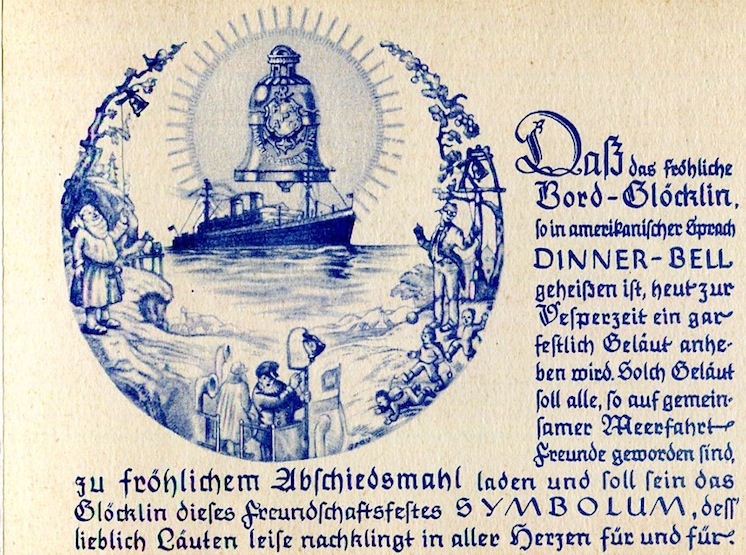 Daß das fröhliche
Bord-Glöcklin,
so in amerikanischer Sprach
DINNER-BELL
geheißen ist, heut zur
Vesperzeit ein gar
festlich Geläut anhe-
ben wird. Solch Geläut
soll alle, so auf gemein-
samer Meerfahrt
Freunde geworden sind,
zu fröhlichem Abschiedsmahl laden und soll sein das
Glöcklin dieses Freundschaftsfestes SYMBOLUM, dess'
lieblich Läuten leise nachklingt in aller Herzen für und für.